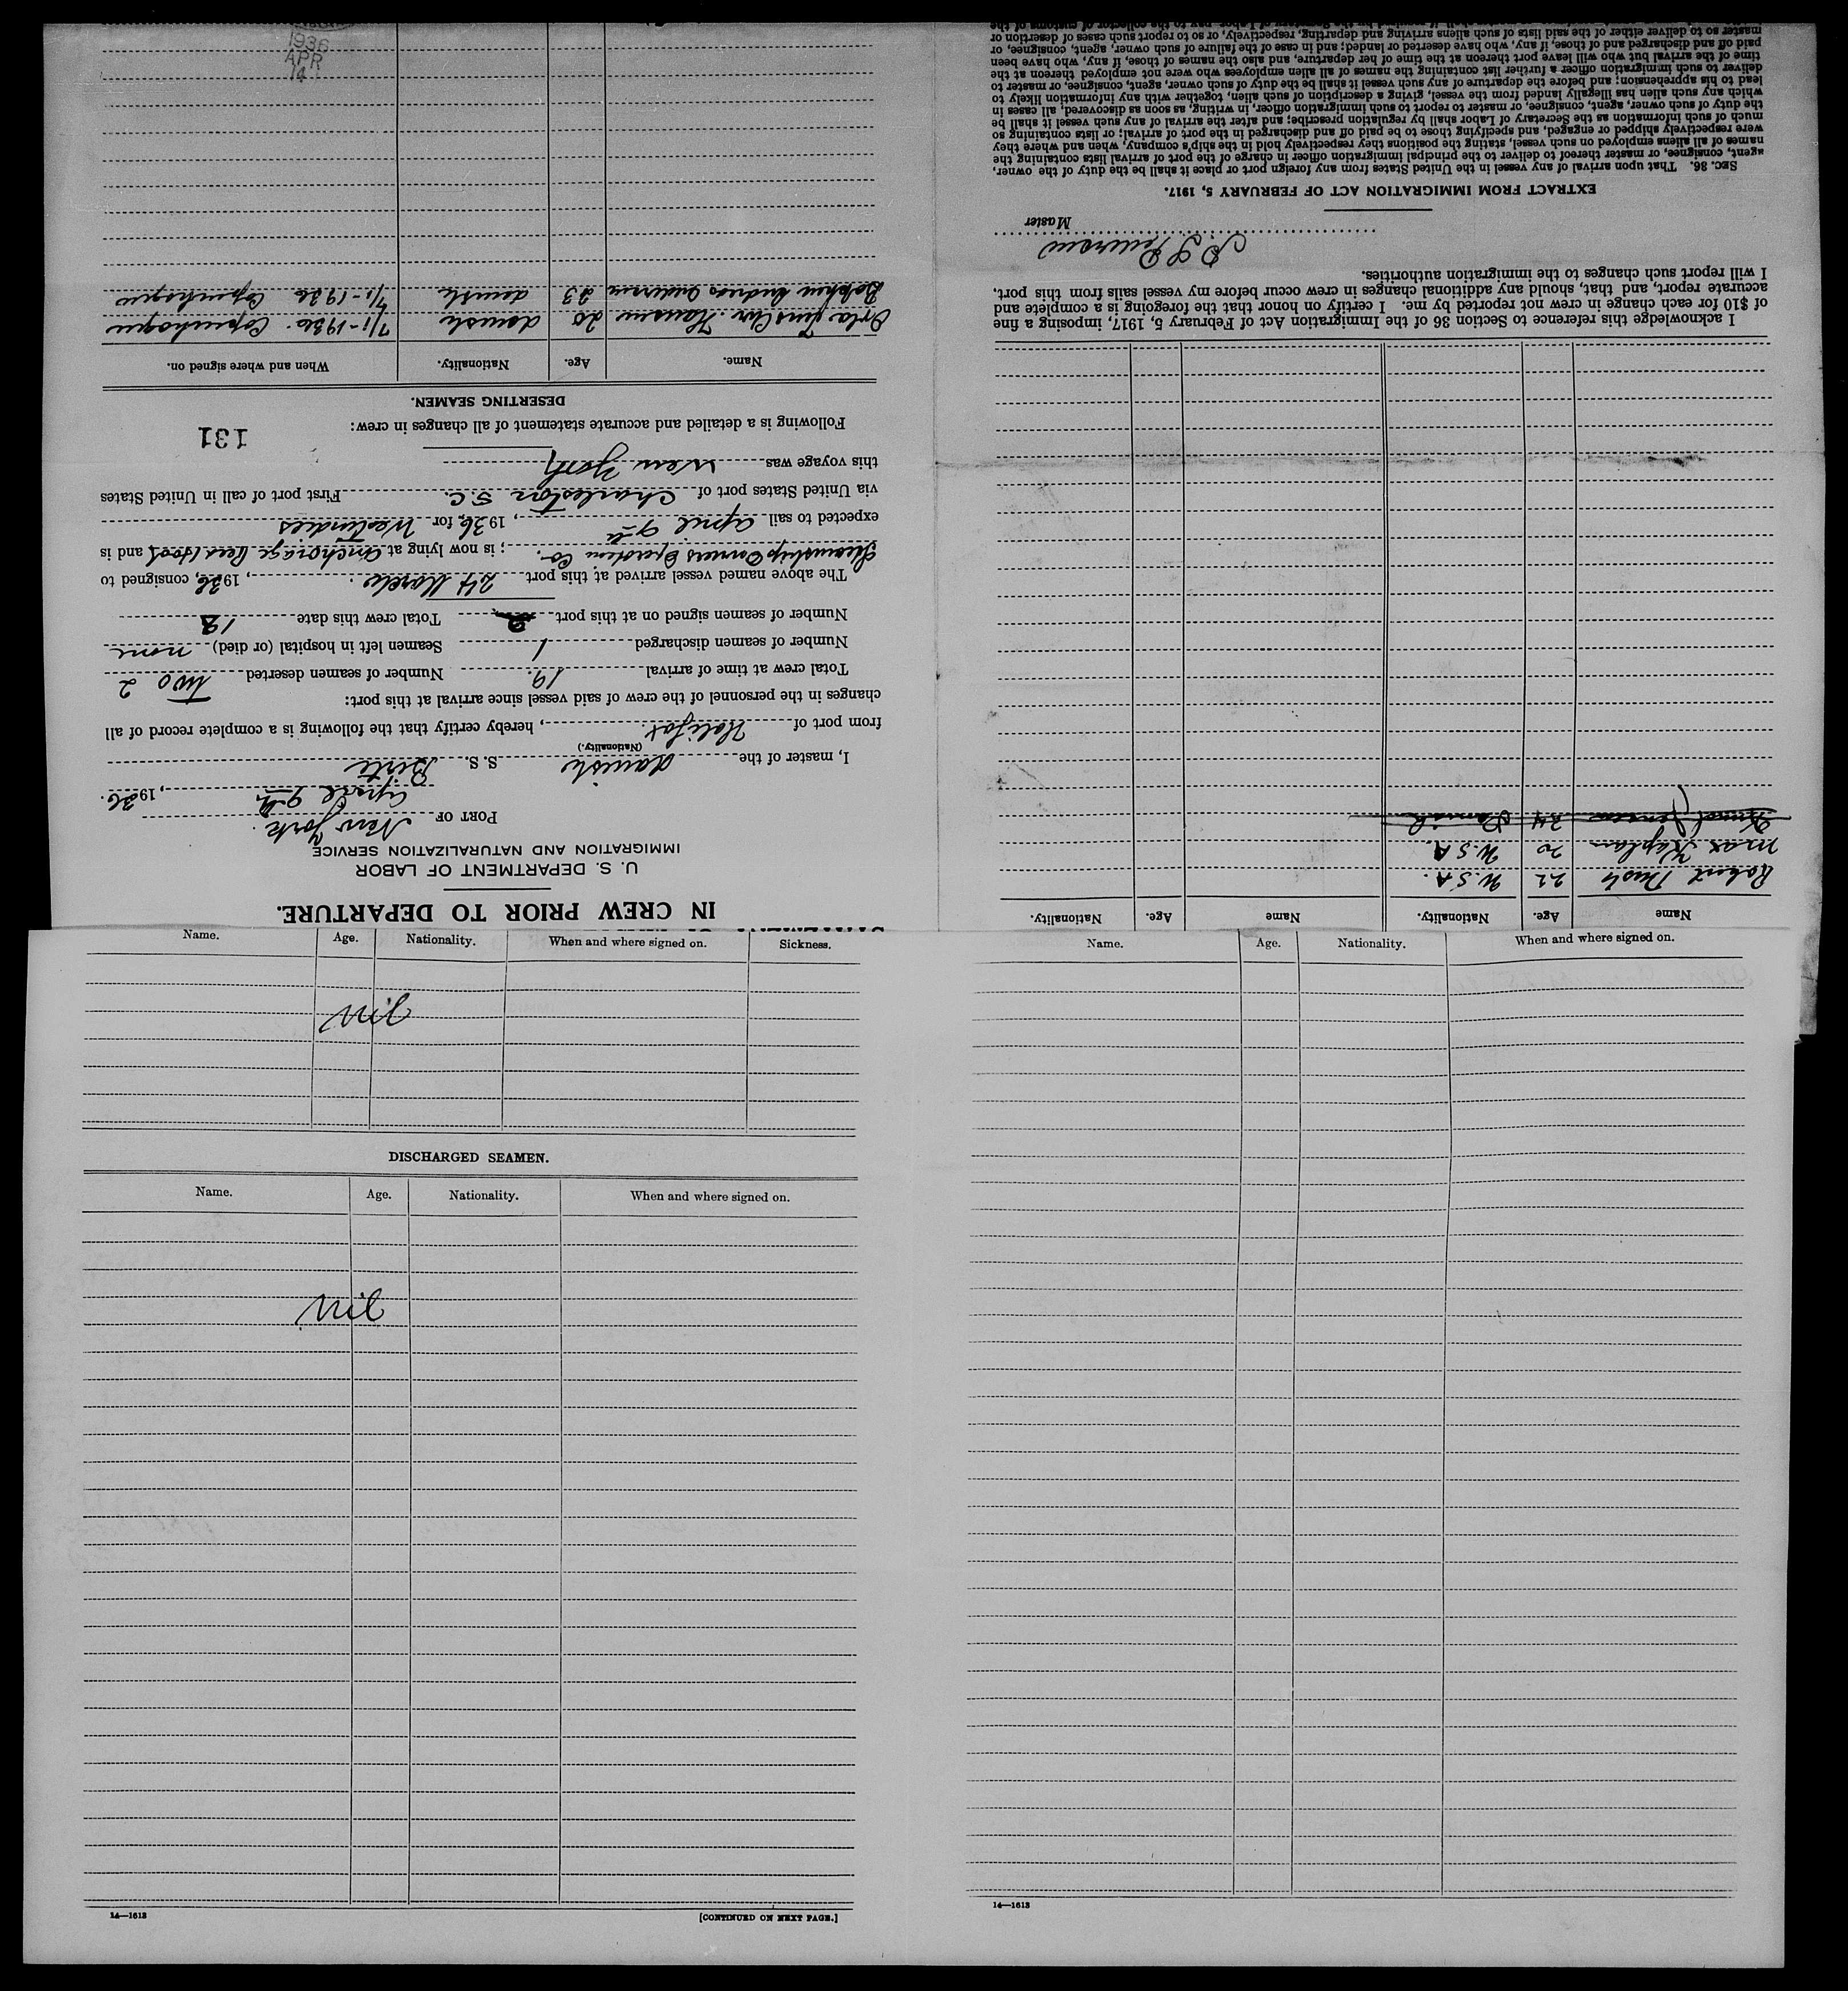 STATEMENT OF
IN CREW PRIOR TO DEPARTURE.
U. S. DEPARTMENT OF LABOR
IMMIGRATION AND NATURALIZATION SERVICE
PORT OF New York.
April 9th, 1936.
I, master of the danish S. S. Birte
(Nationality.)
from port of Halifax, hereby certify that the following is a complete record of all
changes in the personnel of the crew of said vessel since arrival at this port:
Total crew at time of arrival 19. Number of seamen deserted two 2
Number of seamen discharged 1 Seamen left in hospital (or died) none
Number of seamen signed on at this port 2 Total crew this date 18
The above named vessel arrived at this port 24 March, 1936, consigned to
Steamship Owners Operation Co.; is now lying at Anchorage Red Hook, and is
expected to sail April 9th, 1936, for Westindies
via United States port of Charleston S.C. First port of call in United States
this voyage was New York
Following is a detailed and accurate statement of all changes in crew:
131
DESERTING SEAMEN.
Name. Age. Nationality. When and where signed on.
Orla Jens Chr. Hansen 20 danish 7/1-1936. Copenhagen
Andreas Andersen 23 danish 7/1-1936 Copenhagen
1936
APR
14
Name Age. Nationality. Name Age. Nationality.
Robert 22 U.S.A.
Max Kaplan 20 U.S.A.
Jensen 24 Danish
I acknowledge this reference to Section 36 of the Immigration Act of February 5, 1917, imposing a fine
of $10 for each change in crew not reported by me. I certify on honor that the foregoing is a complete and
accurate report, and that, should any additional changes in crew occur before my vessel sails from this port,
I will report such changes to the immigration authorities.
Master
EXTRACT FROM IMMIGRATION ACT OF FEBRUARY 5, 1917.
SEC. 36. That upon arrival of any vessel in the United States from any foreign port or place it shall be the duty of the owner,
agent, consignee, or master thereof to deliver to the principal immigration officer in charge of the port of arrival lists containing the
names of all aliens employed on such vessel, stating the positions they respectively hold in the ship's company, when and where they
were respectively shipped or engaged, and specifying those to be paid off and discharged in the port of arrival; or lists containing so
much of such information as the Secretary of Labor shall by regulation prescribe; and after the arrival of any such vessel it shall be
the duty of such owner, agent, consignee, or master to report to such immigration officer, in writing, as soon as discovered, all cases in
which any such alien has illegally landed from the vessel, giving a description of such alien, together with any information likely to
lead to his apprehension; and before the departure of any such vessel it shall be the duty of such owner, agent, consignee, or master to
deliver to such immigration officer a further list containing the names of all alien employees who were not employed thereon at the
time of the arrival but who will leave port thereon at the time of her departure, and also the names of those, if any, who have been
paid off and discharged and of those, if any, who have deserted or landed; and in case of the failure of such owner, agent, consignee, or
master so to deliver either of the said lists of such aliens arriving and departing, respectively, or so to report such cases of desertion or
Name. Age. Nationality. When and where signed on. Sickness.
Nil
DISCHARGED SEAMEN.
Name. Age. Nationality. When and where signed on.
Nil
14—1613
[CONTINUED ON NEXT PAGE.]
Name. Age. Nationality. When and where signed on.
14—1613